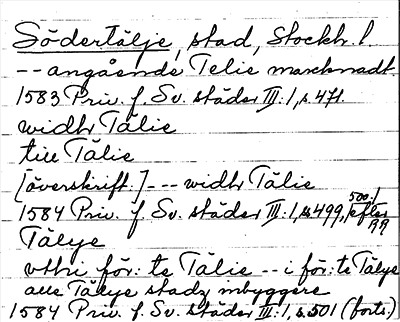 Södertälje, stad, Stockh. l.
-- angående Telie marcknadt.
1583 Priv. f. Sv. städer III:1, s. 471.
widh Tälie
till Tälie
[överskrift:] --- widh Tälie
1584 Priv. f. Sv. städer III:1, s. 499, 500:1 efter
Tälye
vthi för:te Tälie -- i för:te Tälye
alle Tälye stadz inbyggere
1584 Priv. f. Sv. städer III:1, s. 501 (forts.)